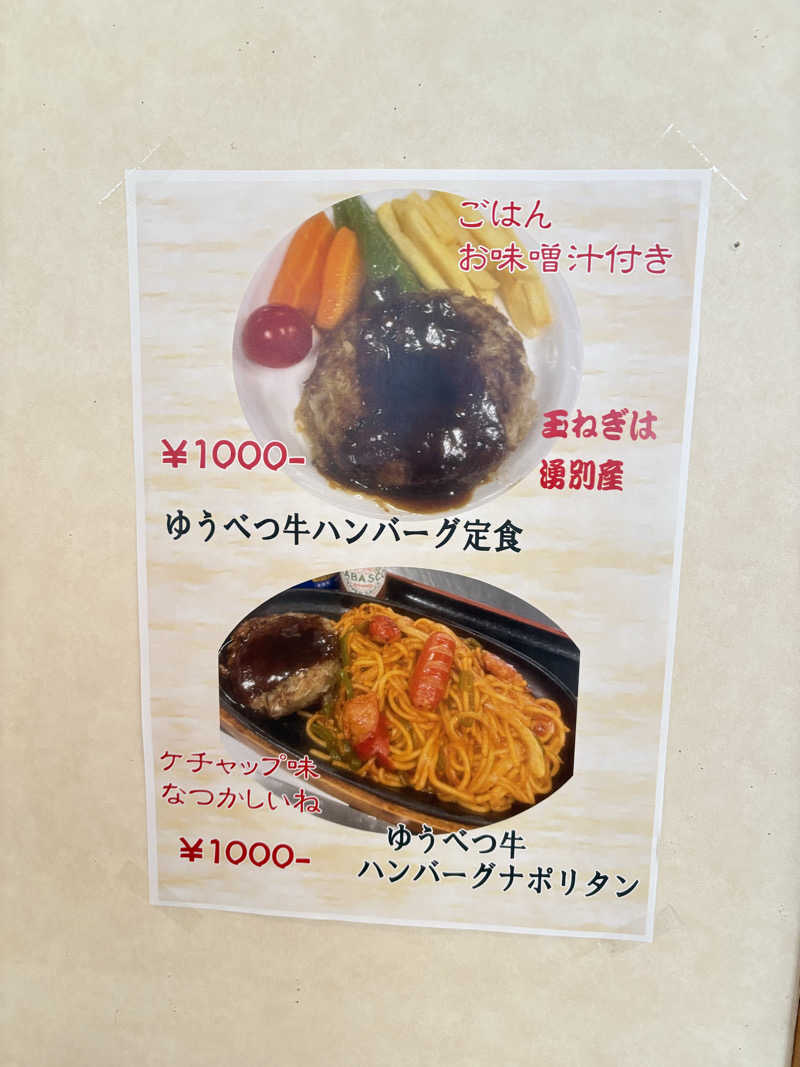 ごはん
お味噌汁付き
玉ねぎは
湧別産
¥1000-
ゆうべつ牛ハンバーグ定食
ABASC
ケチャップ味
なつかしいね
¥1000-
ゆうべつ牛
ハンバーグナポリタン